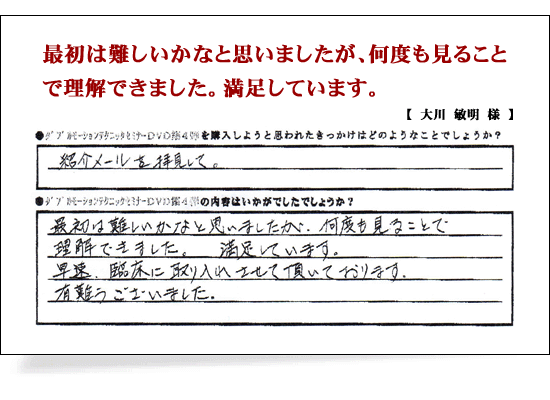 最初は難しいかなと思いましたが、何度も見ること
で理解できました。満足しています。
【 大川 敏明 様 】
●ダブルモーションテクニックセミナーDVD第4弾を購入しようと思われたきっかけはどのようなことでしょうか？
紹介メールを拝見して。
●ダブルモーションテクニックセミナーDVD第4弾の内容はいかがでしたでしょうか？
最初は難しいかなと思いましたが、何度も見ることで
理解できました。 満足しています。
早速、臨床に取り入れさせて頂いております。
有難うございました。